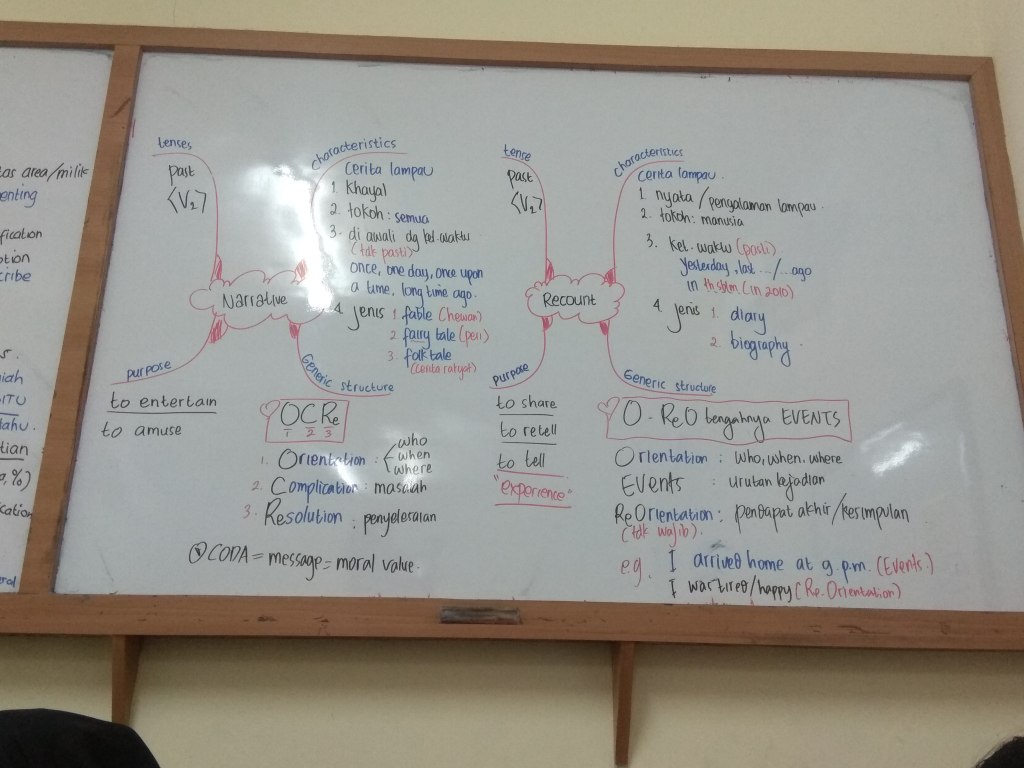 tas area/milik
enting
fication
ption
cribe
s.
iah
ITU
tahu.
tian
a,%)
ication
eral
tenses
past
<V₂>
characteristics
Cerita lampau
1. Khayal
2. tokoh : semua
3. di awali dg ket.waktu
(tdk pasti)
once, one day, once upon
a time, long time ago.
4. jenis 1. fable (hewan)
2. fairy tale (peri)
3. folktale
(cerita rakyat)
Narrative
purpose
to entertain
to amuse
Generic structure
OCRe
1 2 3
1. Orientation : who
when
where
2. Complication : masalah
3. Resolution : penyelesaian
CODA = message = moral value.
tense
past
<V₂>
characteristics
Cerita lampau.
1. nyata / pengalaman lampau.
2. tokoh : manusia
3. Ket. waktu (pasti)
yesterday, last ... / ... ago
in th sblm (in 2010)
4. jenis 1. diary
2. biography.
Recount
purpose
to share
to retell
to tell
"experience"
Generic structure
O - ReO tengahnya EVENTS
Orientation : who, when, where
EVENTS : urutan kejadian
ReOrientation : pendapat akhir/kesimpulan
(tdk wajib).
e.g. I arrived home at 9 p.m. (Events.)
I was tired/happy (Re.Orientation)